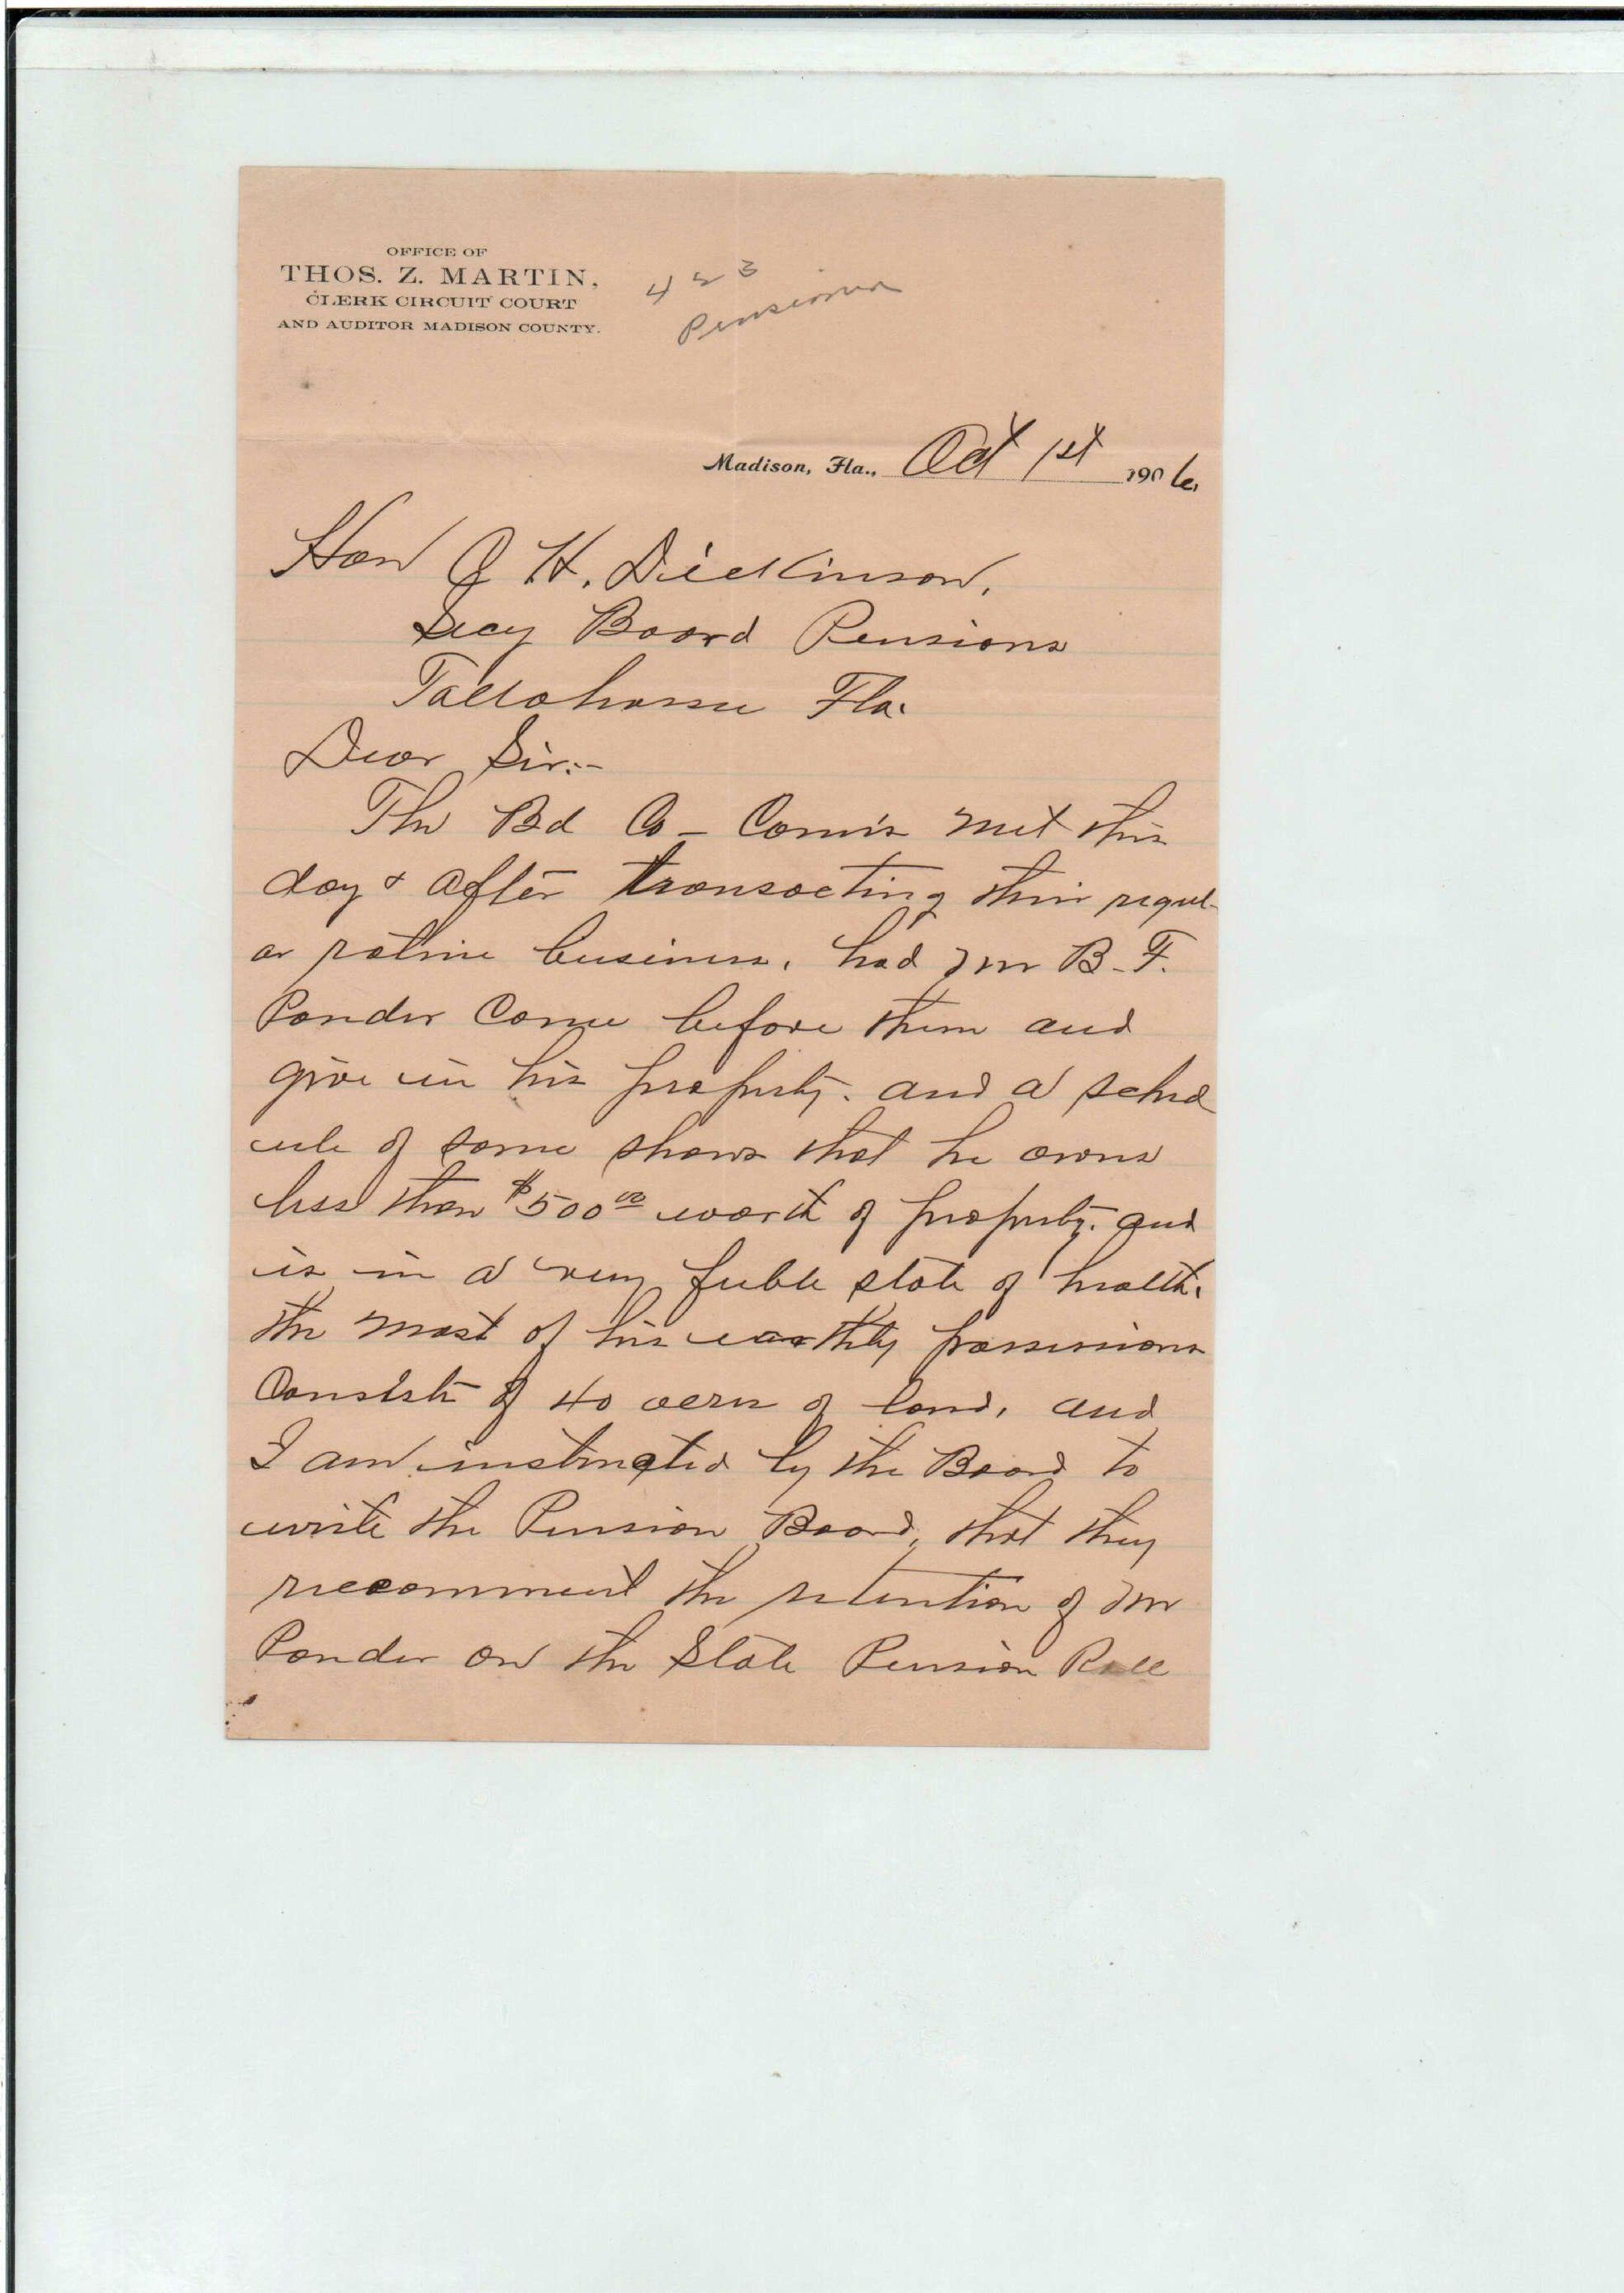 OFFICE OF
THOS. Z. MARTIN,
CLERK CIRCUIT COURT
AND AUDITOR MADISON COUNTY.
423
Pensioner
Madison, Fla., Oct 1st 1906.
Hon J H. Dickinson,
Secy Board Pensions
Tallahassee Fla.
Dear Sir:-
The Bd Co - Com's met this
day & after transacting their regul-
ar rotine business, had Mr B. F.
Ponder Come before them and
give in his property. and a sched
ule of same shows that he owns
less than $500 00 worth of property. and
is in a very feeble state of health.
the most of his earthly possessions
Consists of 40 acres of land, and
I am instructed by the Board to
write the Pension Board, that they
recommend the retention of Mr
Ponder on the State Pension Roll